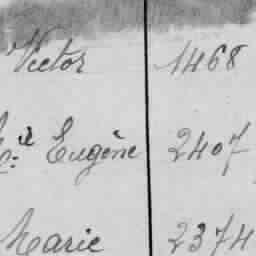 Victor 1468
Eugène 2407
Marie 2374